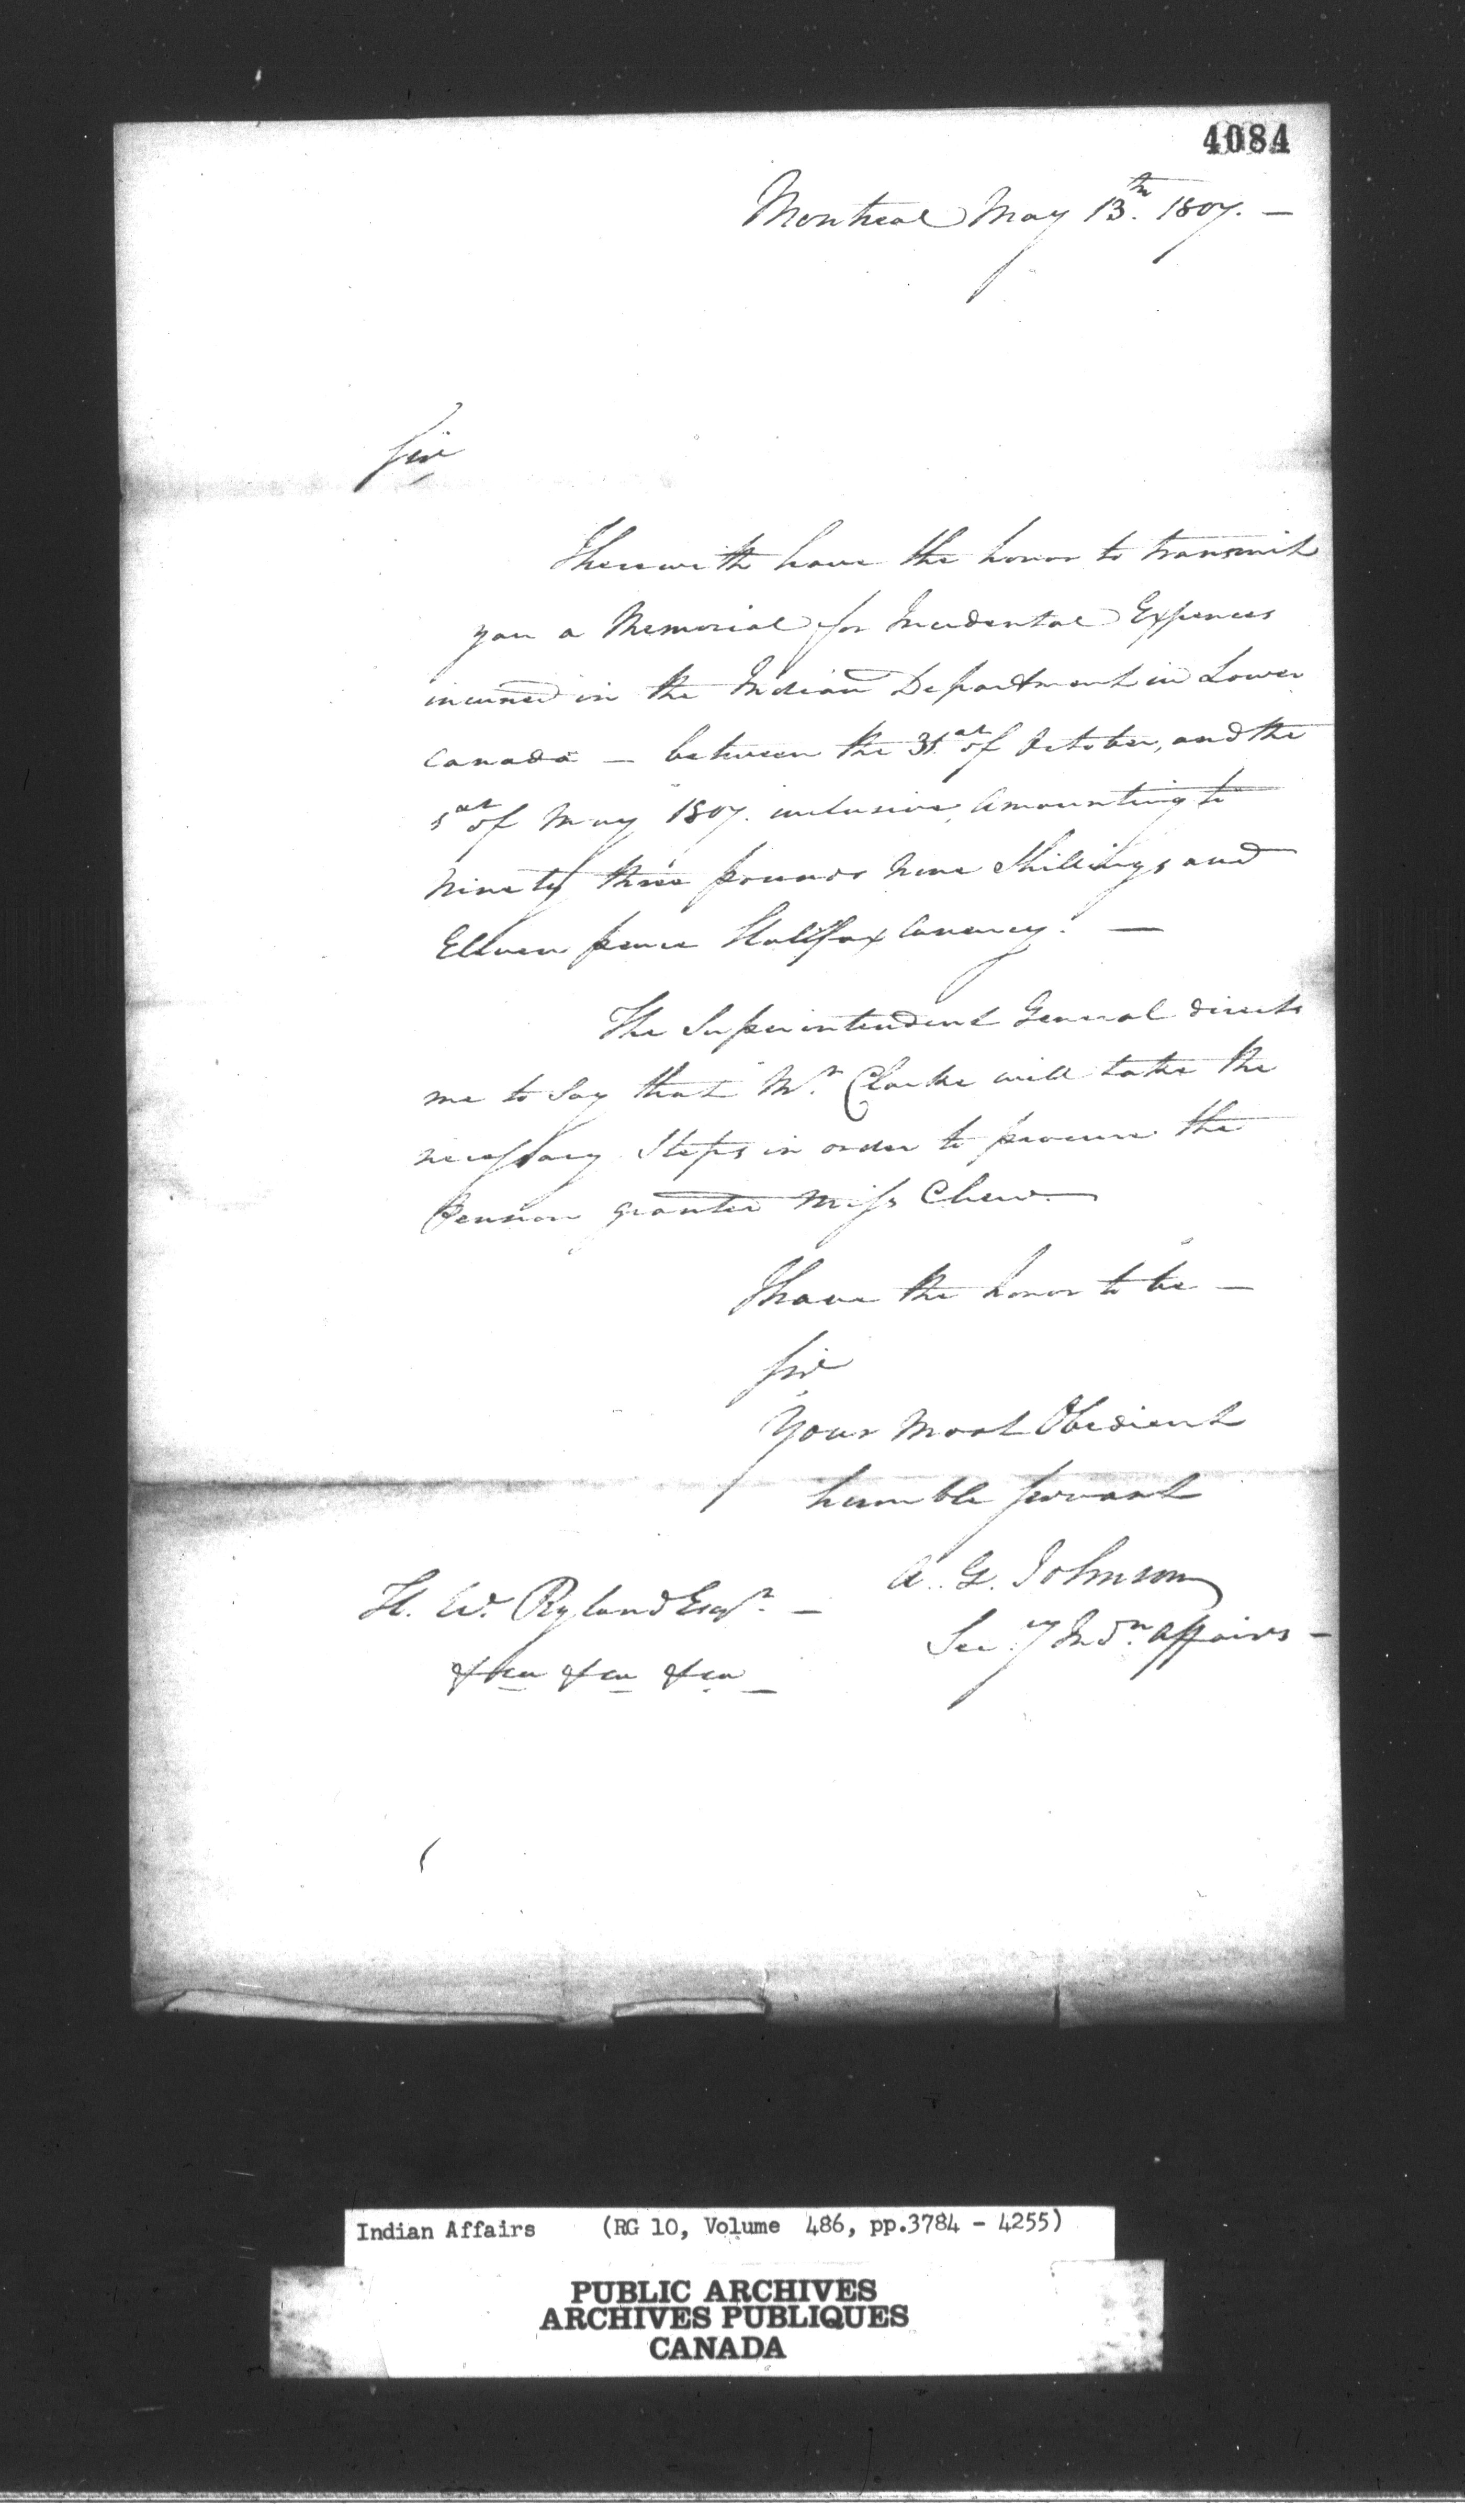 4084
Montreal May 13th. 1807. —
Sir
I herewith have the honor to transmit
you a Memorial for Incidental Expences
incurred in the Indian Department in Lower
Canada — between the 31st of October, and the
1st of May 1807. inclusive, Amounting to
Ninety three pounds Nine Shillings and
Eleven pence Hallifax Currency. —
The Superintendent General directs
me to Say that Mr. Clarke will take the
necessary Steps in order to procure the
Pension granted Miss Chew. —
I have the honor to be —
Sir
Your Most Obedient
humble Servant
A. G. Johnson
Secy Indn. Affairs —
H. W. Ryland Esqr. —
&ca &ca &ca —
Indian Affairs (RG 10, Volume 486, pp.3784 - 4255)
PUBLIC ARCHIVES
ARCHIVES PUBLIQUES
CANADA